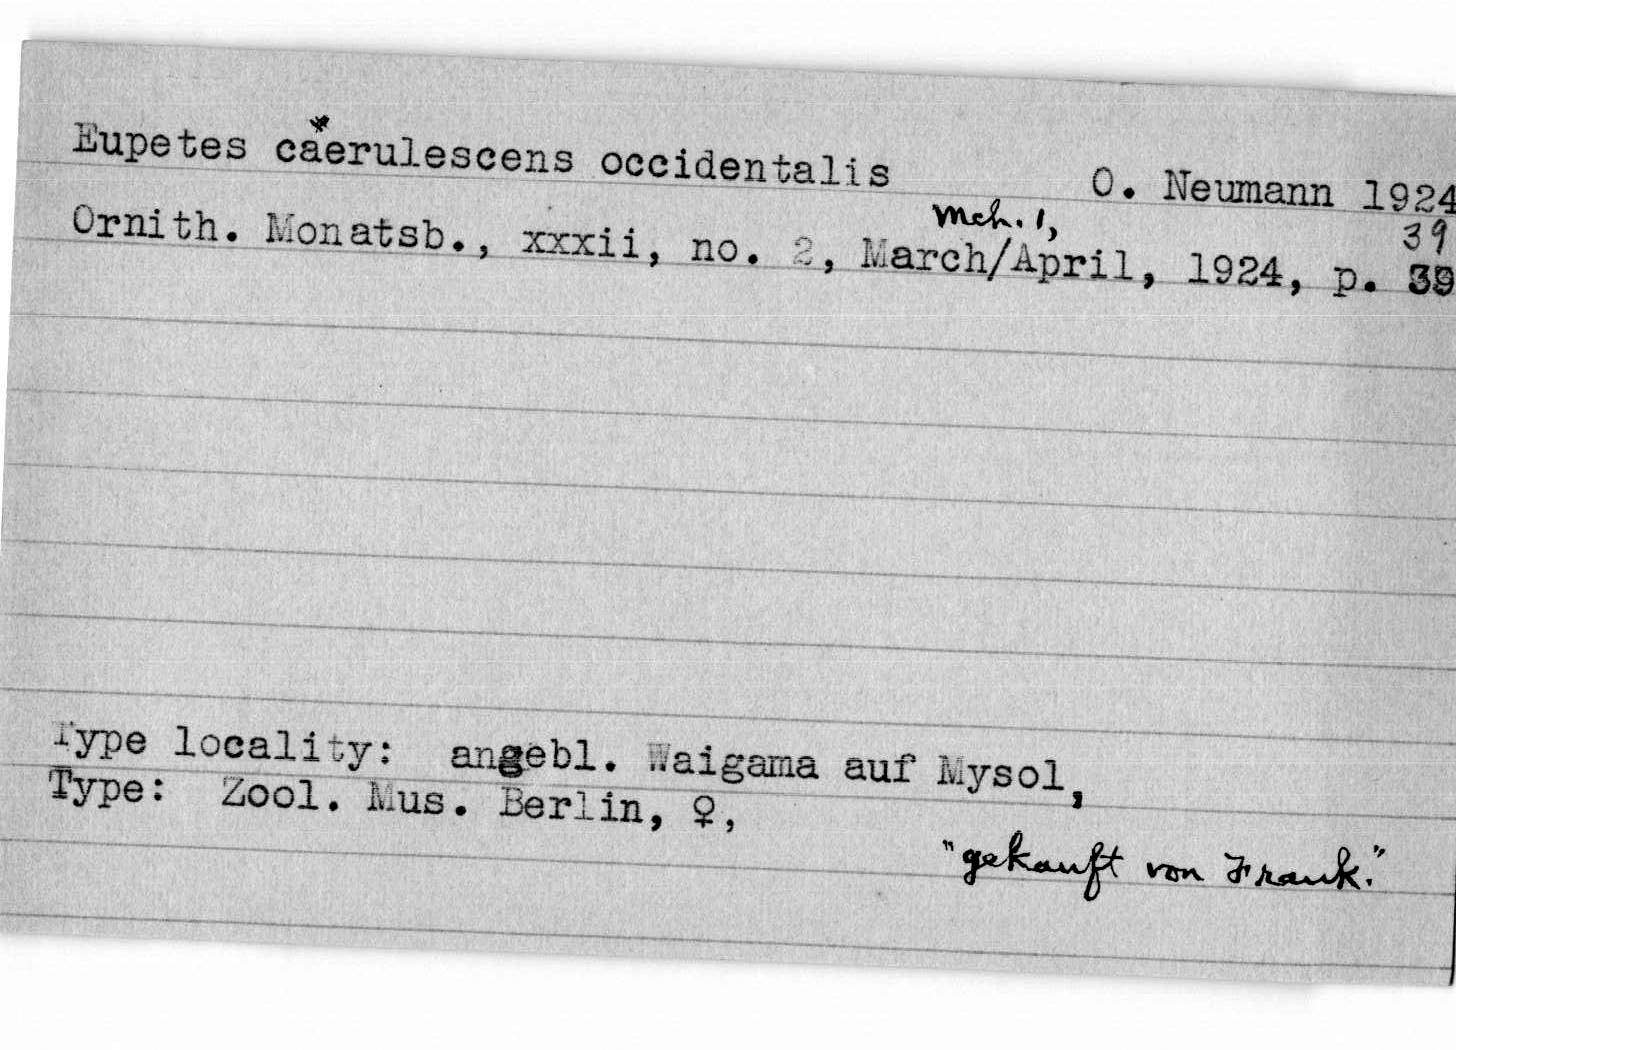 Eupetes caerulescens occidentalis O. Neumann 1924
Mch. 1, 39
Ornith. Monatsb., xxxii, no. 2, March/April, 1924, p. 39
Type locality: angebl. Waigama auf Mysol,
Type: Zool. Mus. Berlin, ♀,
"gekauft von Frank."